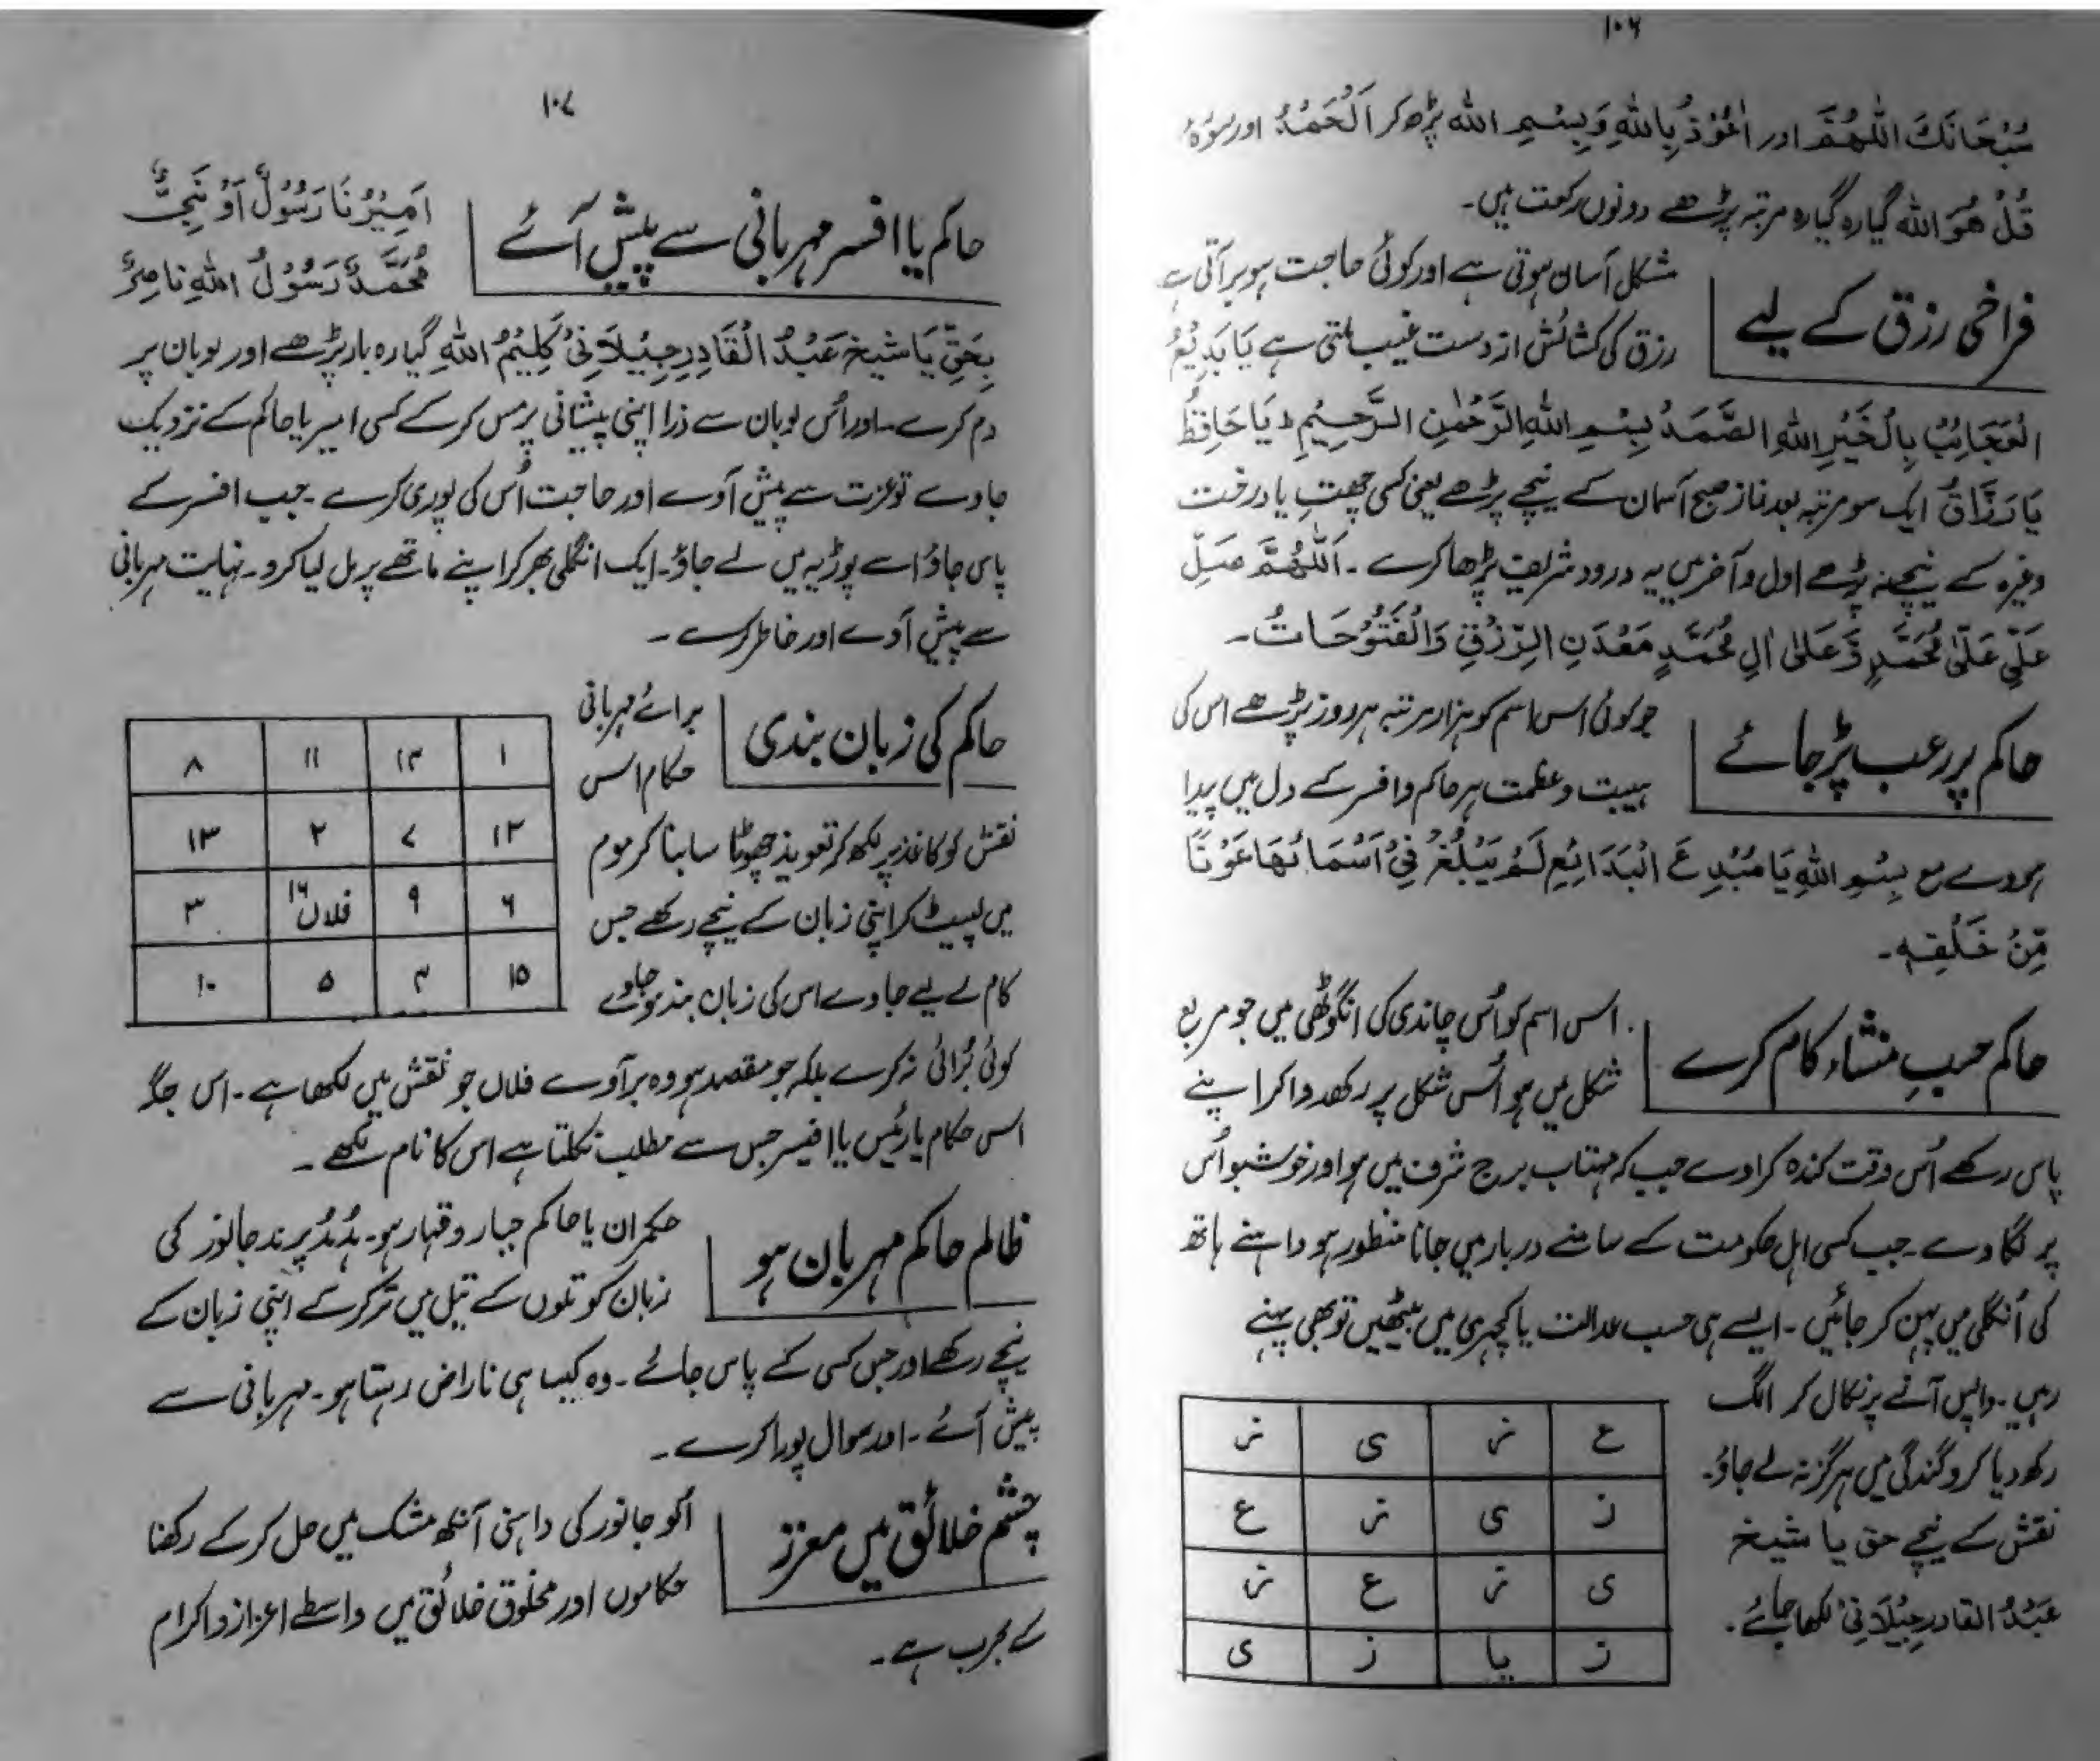 ۱۰۶
سُبْحَانَكَ اللّٰهُمَّ اور اَعُوْذُ بِاللّٰهِ وَبِسْمِ اللّٰه پڑھ کر اَلْحَمْدُ اور سورۂ
قُلْ هُوَ اللّٰه گیارہ گیارہ مرتبہ پڑھے دونوں رکعت میں۔
فراخی رزق کے لیے
مشکل آسان ہوتی ہے اور کوئی حاجت ہو برآتی ہے
رزق کی کشائش از دست غیب ملتی ہے یَا بَدِیْعُ
الْعَجَائِبُ بِالْخَیْرِ اللّٰهِ الصَّمَدُ بِسْمِ اللّٰهِ الرَّحْمٰنِ الرَّحِیْمِ ط یَا حَافِظُ
یَا رَزَّاقُ ایک سو مرتبہ بعد نماز صبح آسمان کے نیچے پڑھے یعنی کسی چھت یا درخت
وغیرہ کے نیچے نہ پڑھے اول و آخر میں یہ درود شریف پڑھا کرے ۔ اَللّٰهُمَّ صَلِّ
عَلٰی مُحَمَّدٍ وَّعَلٰی اٰلِ مُحَمَّدٍ مَعْدَنِ الرِّزْقِ وَالْفَتُوْحَاتُ۔
حاکم پر رعب پڑ جائے
جو کوئی اس اسم کو ہزار مرتبہ ہر روز پڑھے اس کی
ہیبت و عظمت ہر حاکم و افسر کے دل میں پیدا
ہووے مع بِسْمِ اللّٰهِ یَا مُبْدِعَ الْبَدَائِعِ لَمْ یَبْلُغْ فِیْ اَسْمَائِهَا عَوْنًا
مِّنْ خَلْقِهٖ۔
حاکم حسبِ منشاء کام کرے
اس اسم کو اُس چاندی کی انگوٹھی میں جو مربع
شکل میں ہو اُس شکل پر رکھدوا کر اپنے
پاس رکھے اُس وقت کندہ کراوے جب کہ مہتاب برج شرف میں ہو اور خوشبو اُس
پر لگاوے ۔ جب کسی اہل حکومت کے سامنے دربار میں جانا منظور ہو داہنے ہاتھ
کی اُنگلی میں پہن کر جائیں ۔ ایسے ہی حسب عدالت یا کچہری میں بیٹھیں تو بھی پہنے
رہیں ۔ واپس آنے پر نکال کر الگ
رکھ دیا کرو گندگی میں ہرگز نہ لے جاؤ۔
نقش کے نیچے حق یا شیخ
عَبْدُ القادر جِیْلَانِیْ لکھا جائے ۔
ع ز ی ز
ز ی ز ع
ی ز ع ز
ز یا ز ی
۱۰۷
حاکم یا افسر مہربانی سے پیش آئے
اَمِیْرُنَا رَسُوْلٌ اَوْ نَبِیٌّ
مُحَمَّدٌ رَسُوْلُ اللّٰهِ نَاصِرٌ
بِحَقِّ یَا شیخ عَبْدُ الْقَادِرِ جِیْلَانِیْ کَلِیْمُ اللّٰهِ گیارہ بار پڑھے اور لوبان پر
دم کرے ۔ اور اُس لوبان سے ذرا اپنی پیشانی پر مس کر کے کسی امیر یا حاکم کے نزدیک
جاوے تو عزت سے پیش آوے اور حاجت اُس کی پوری کرے ۔ جب افسر کے
پاس جاؤ اسے پوڑیہ میں لے جاؤ ۔ ایک انگلی بھر کر اپنے ماتھے پر مل لیا کرو ۔ نہایت مہربانی
سے پیش آوے اور خاطر کرے ۔
حاکم کی زبان بندی
برائے مہربانی
حکام اس
نقش کو کاغذ پر لکھ کر تعویذ چھوٹا سا بنا کر موم
میں لپیٹ کر اپنی زبان کے نیچے رکھے جس
کام کے لیے جاوے اس کی زبان بند ہو جاوے
۱ ۱۴ ۱۱ ۸
۱۲ ۷ ۲ ۱۳
۶ ۹ ۱۶ فلاں ۳
۱۵ ۴ ۵ ۱۰
کوئی بُرائی نہ کرے بلکہ جو مقصد ہو وہ برآوے فلاں جو نقش میں لکھا ہے ۔ اس جگہ
اس حکام یا رئیس یا افیسر جس سے مطلب نکلتا ہے اس کا نام لکھے ۔
ظالم حاکم مہربان ہو
حکمران یا حاکم جبار و قہار ہو ۔ ہُدہُد پرند جانور کی
زبان کو تلوں کے تیل میں تر کر کے اپنی زبان کے
نیچے رکھے اور جس کسی کے پاس جائے ۔ وہ کیسا ہی ناراض رہتا ہو ۔ مہربانی سے
پیش آئے ۔ اور سوال پورا کرے ۔
چشم خلائق میں معزز
اُلو جانور کی داہنی آنکھ مشک میں حل کر کے رکھنا
حکاموں اور مخلوق خلائق میں واسطے اعزاز و اکرام
کے مجرب ہے ۔